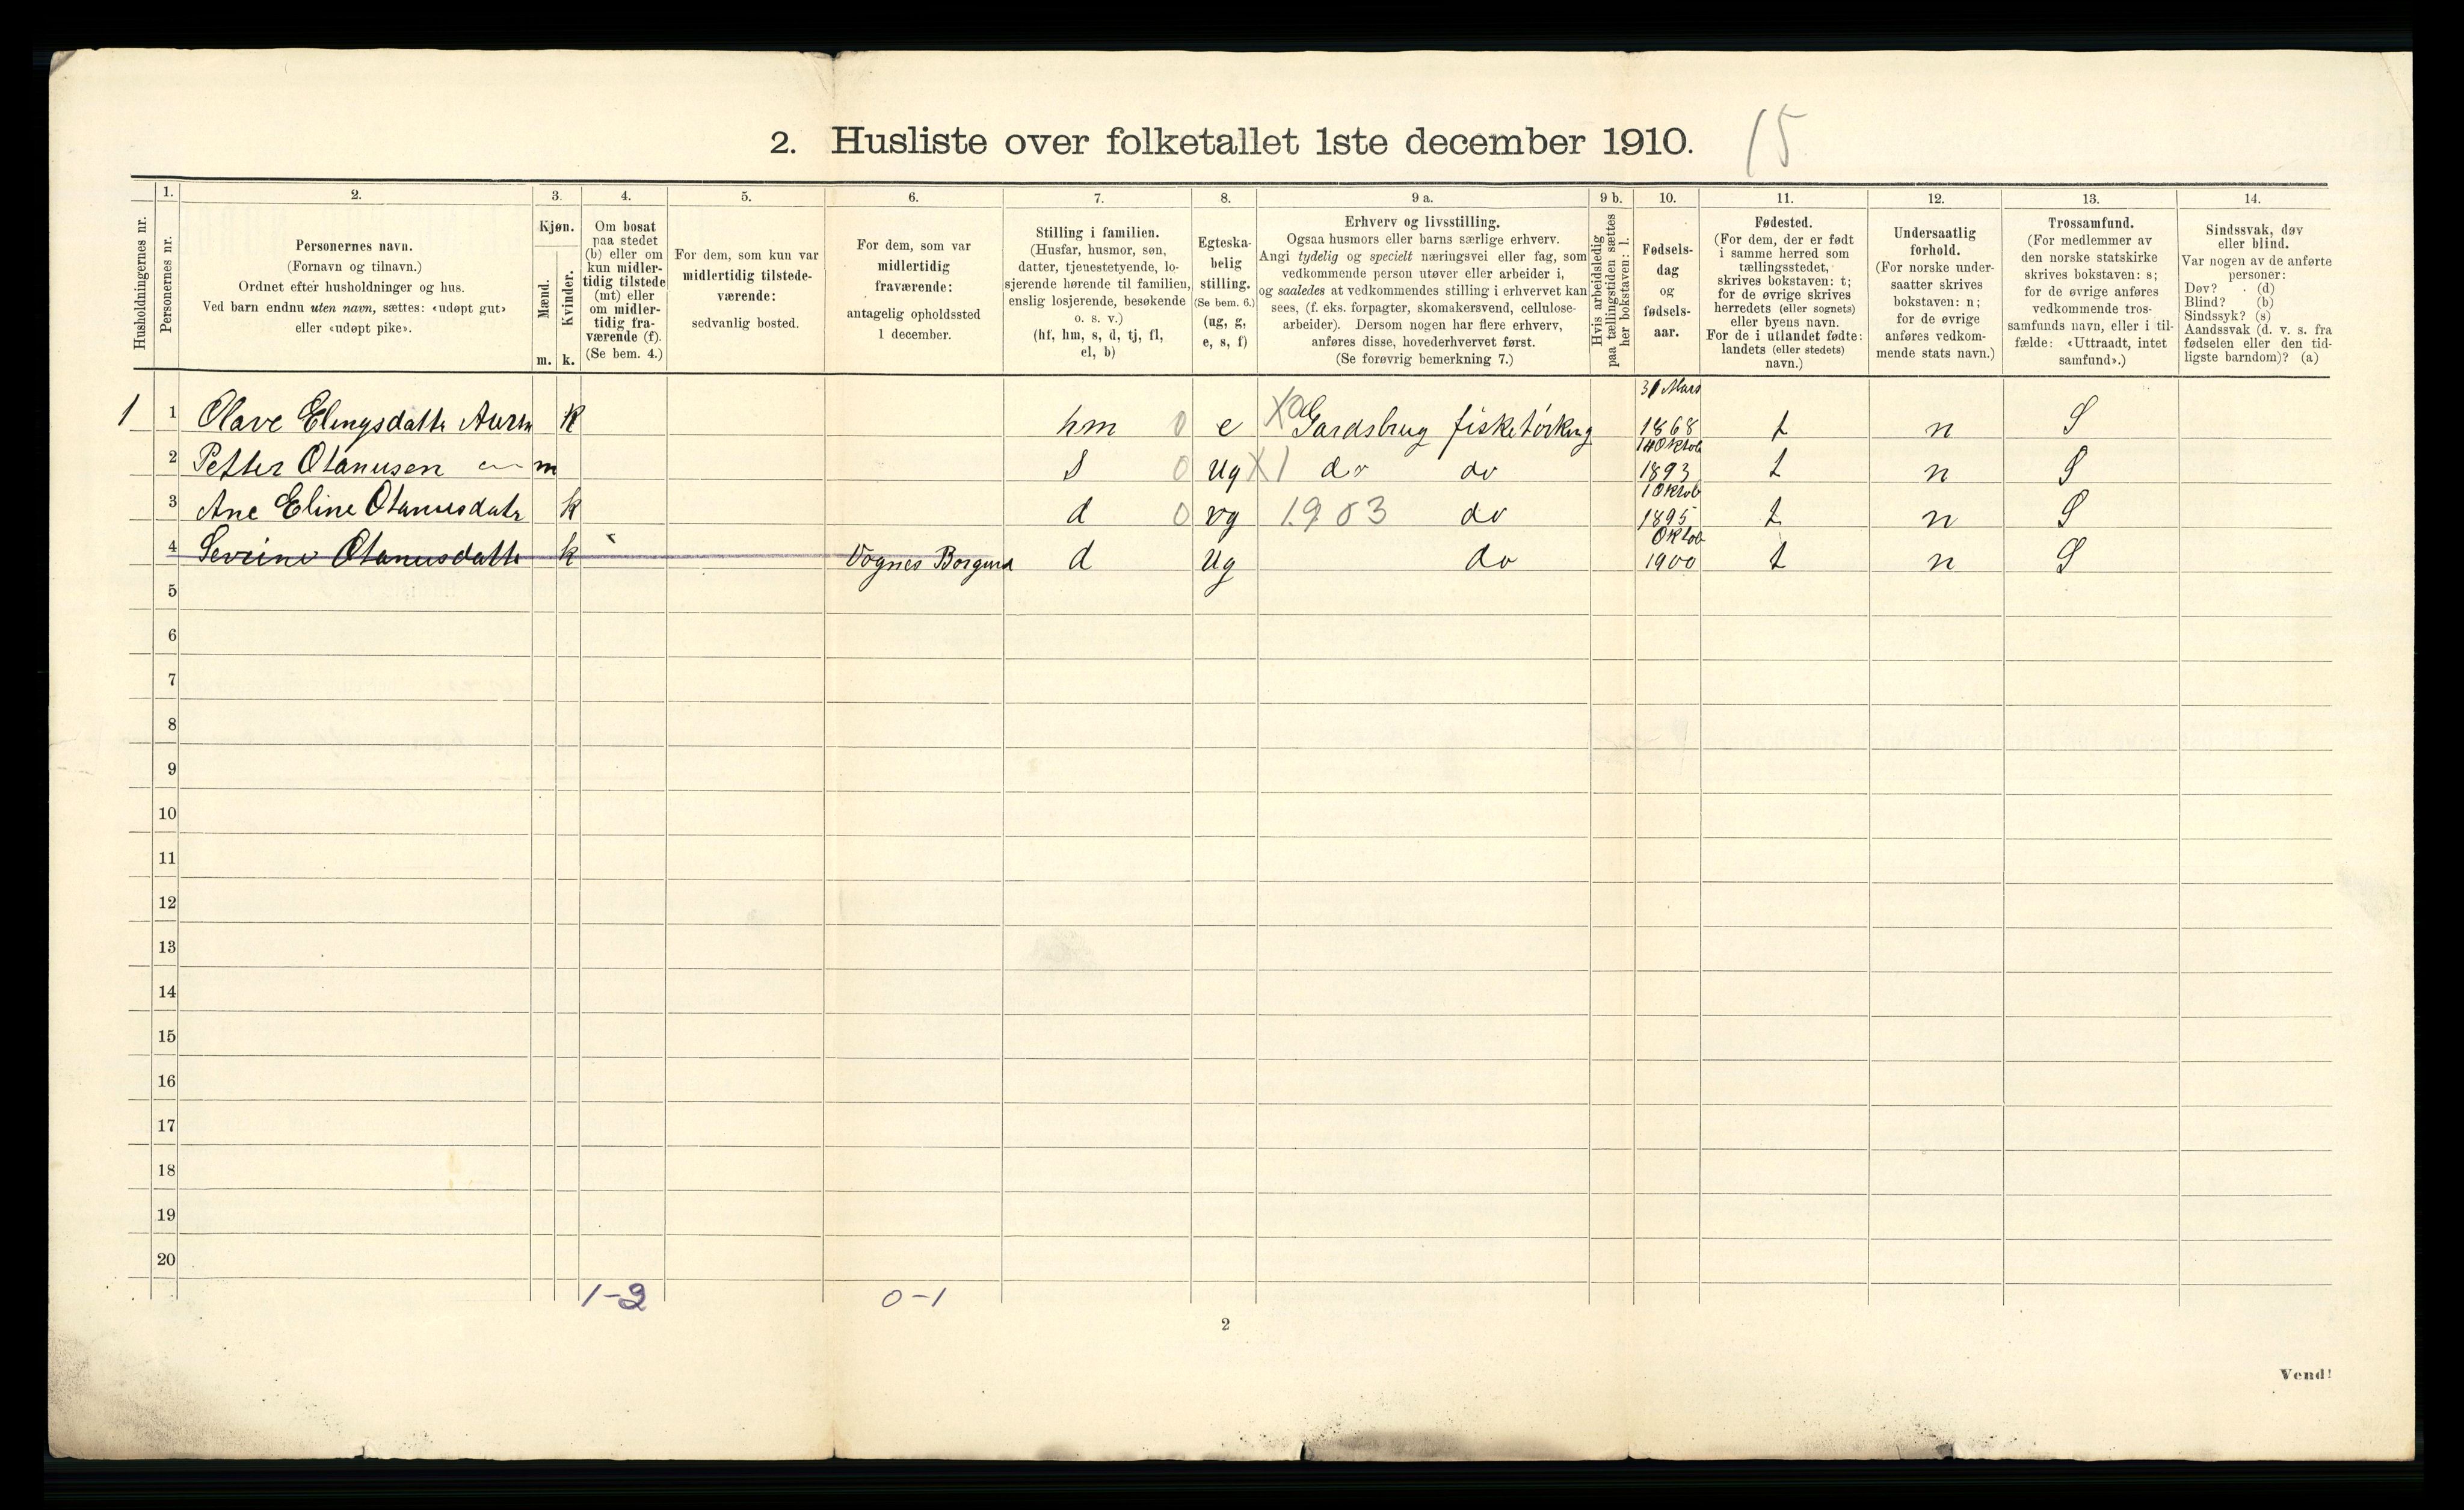 2. Husliste over folketallet 1ste december 1910. 15
Husholdningernes nr.
1.
Personernes nr.
2.
Personernes navn.
(Fornavn og tilnavn.)
Ordnet efter husholdninger og hus.
Ved barn endnu uten navn, sættes: «udøpt gut»
eller «udøpt pike».
3.
Kjøn.
Mænd. Kvinder.
m. k.
4.
Om bosat
paa stedet
(b) eller om
kun midler-
tidig tilstede
(mt) eller
om midler-
tidig fra-
værende (f).
(Se bem. 4.)
5.
For dem, som kun var
midlertidig tilstede-
værende:
sedvanlig bosted.
6.
For dem, som var
midlertidig
fraværende:
antagelig opholdssted
1 december.
7.
Stilling i familien.
(Husfar, husmor, søn,
datter, tjenestetyende, lo-
sjerende hørende til familien,
enslig losjerende, besøkende
o. s. v.)
(hf, hm, s, d, tj, fl,
el, b)
8.
Egteska-
belig
stilling.
(Se bem. 6.)
(ug, g,
e, s, f)
9 a.
Erhverv og livsstilling.
Ogsaa husmors eller barns særlige erhverv.
Angi tydelig og specielt næringsvei eller fag, som
vedkommende person utøver eller arbeider i,
og saaledes at vedkommendes stilling i erhvervet kan
sees, (f. eks. forpagter, skomakersvend, cellulose-
arbeider). Dersom nogen har flere erhverv,
anføres disse, hovederhvervet først.
(Se forøvrig bemerkning 7.)
9 b.
Hvis arbeidsledig
paa tællingstiden sættes
her bokstaven: l.
10.
Fødsels-
dag
og
fødsels-
aar.
11.
Fødested.
(For dem, der er født
i samme herred som
tællingsstedet,
skrives bokstaven: t;
for de øvrige skrives
herredets (eller sognets)
eller byens navn.
For de i utlandet fødte:
landets (eller stedets)
navn.)
12.
Undersaatlig
forhold.
(For norske under-
saatter skrives
bokstaven: n;
for de øvrige
anføres vedkom-
mende stats navn.)
13.
Trossamfund.
(For medlemmer av
den norske statskirke
skrives bokstaven: s;
for de øvrige anføres
vedkommende tros-
samfunds navn, eller i til-
fælde: «Uttraadt, intet
samfund».)
14.
Sindssvak, døv
eller blind.
Var nogen av de anførte
personer:
Døv? (d)
Blind? (b)
Sindssyk? (s)
Aandssvak (d. v. s. fra
fødselen eller den tid-
ligste barndom)? (a)
1 1 Olave Elingsdattr k hm 0 e Gardsbrug fisketørking 31 Mars 1868 t n S
2 Petter Otanusen m s 0 ug X1 do do Oktob 1893 t n S
3 Ane Eline Otanusdatr k d 0 ug 1903 do 1 Oktob 1895 t n S
4 Sevrine Otanusdattr k Borgund d ug do Oktob 1900 t n S
5
6
7
8
9
10
11
12
13
14
15
16
17
18
19
20
1-2 0-1
2
Vend!